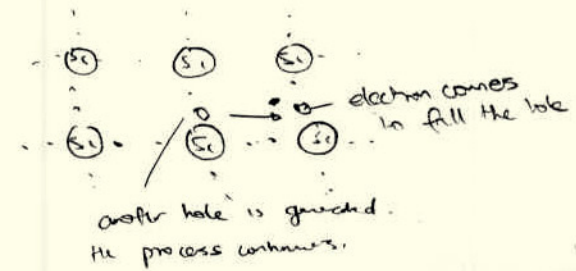 Si Si Si
electron comes
in fill the hole
Si Si Si
another hole is generated.
the process continues.